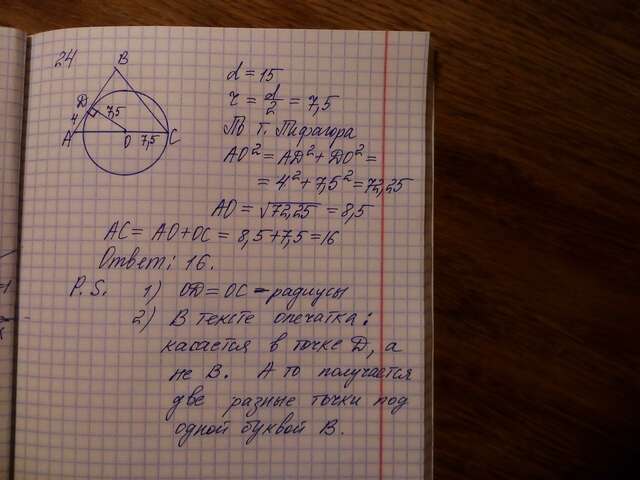 24
B
D
7,5
4
A
O
7,5
C
d = 15
r = d/2 = 7,5
По т. Пифагора
AO² = AD² + DO² =
= 4² + 7,5² = 72,25
AO = √72,25 = 8,5
AC = AO + OC = 8,5 + 7,5 = 16
Ответ: 16.
P. S. 1) OD = OC – радиусы
2) В тексте опечатка:
касается в точке D, а
не B. А то получается
две разные точки под
одной буквой B.